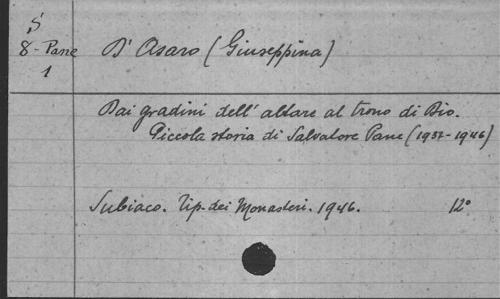 S
8-Pane
1
D'Asaro (Giuseppina)
Dai gradini dell'altare al trono di Dio.
Piccola storia di Salvatore Pane (1937-1946)
Subiaco. Tip. dei Monasteri. 1946. 12°